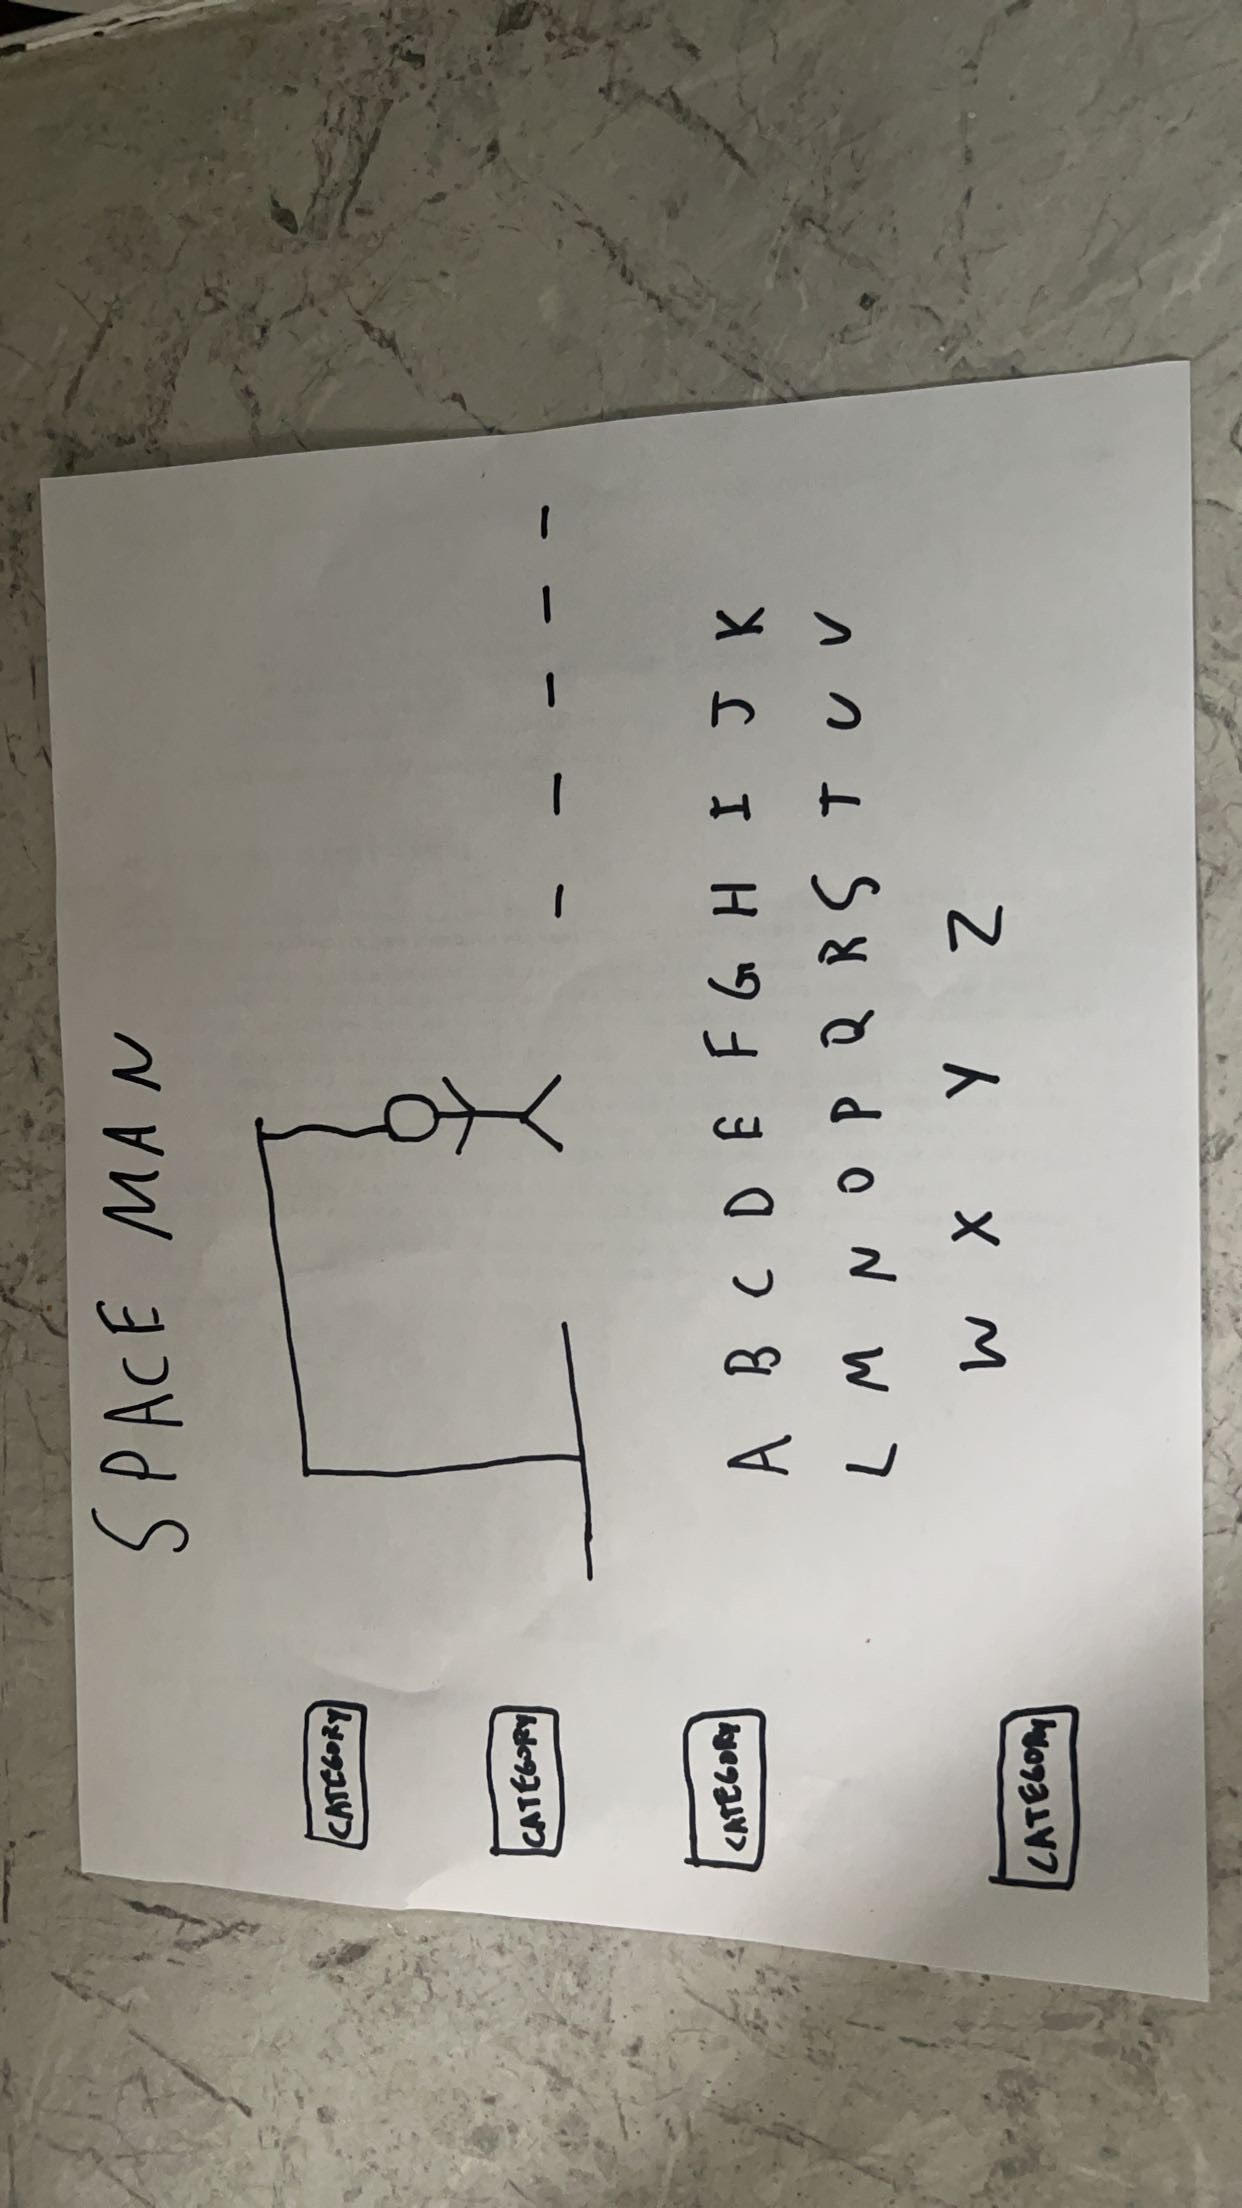 SPACE MAN
CATEGORY
CATEGORY
CATEGORY
CATEGORY
_ _ _ _ _
A B C D E F G H I J K
L M N O P Q R S T U V
W X Y Z